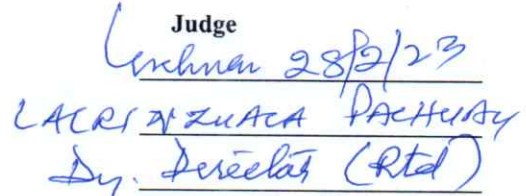 Judge
28/2/23
LALRINZUALA PACHUAU
Dy. Director (Rtd)